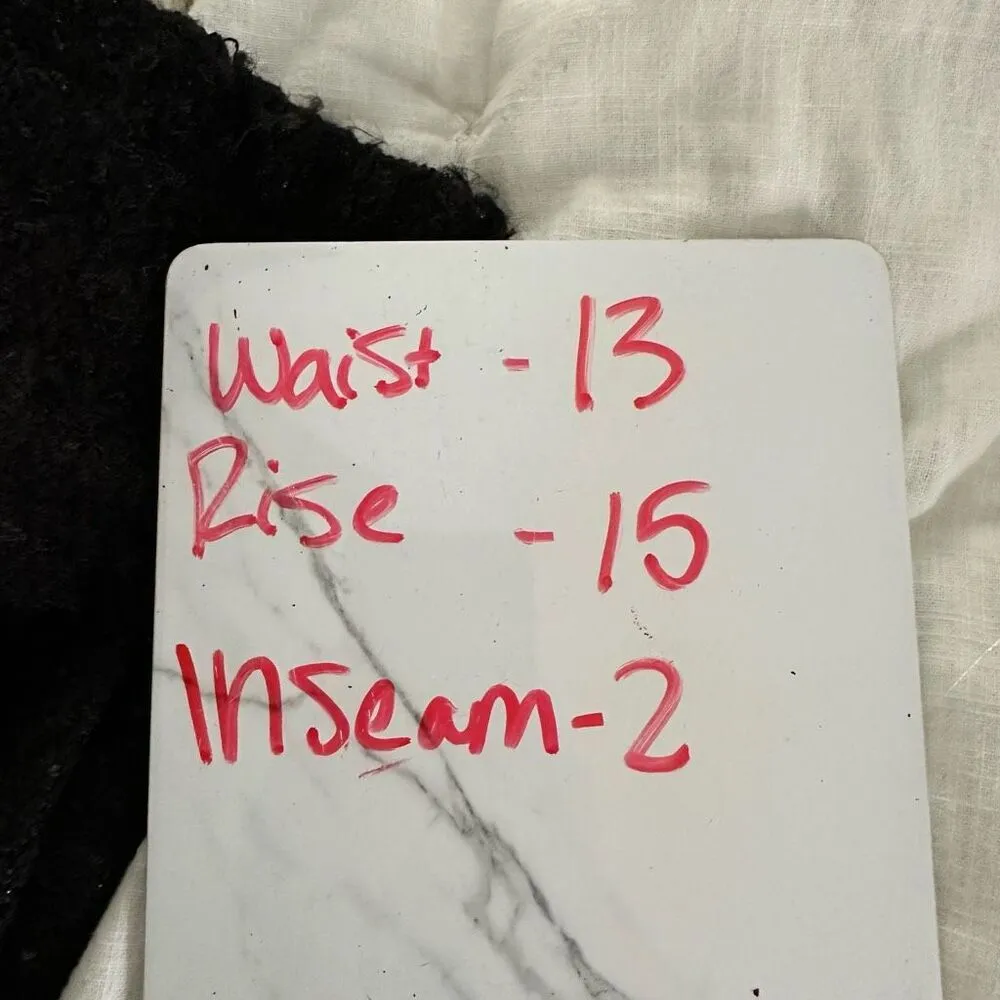 Waist - 13
Rise - 15
Inseam - 2